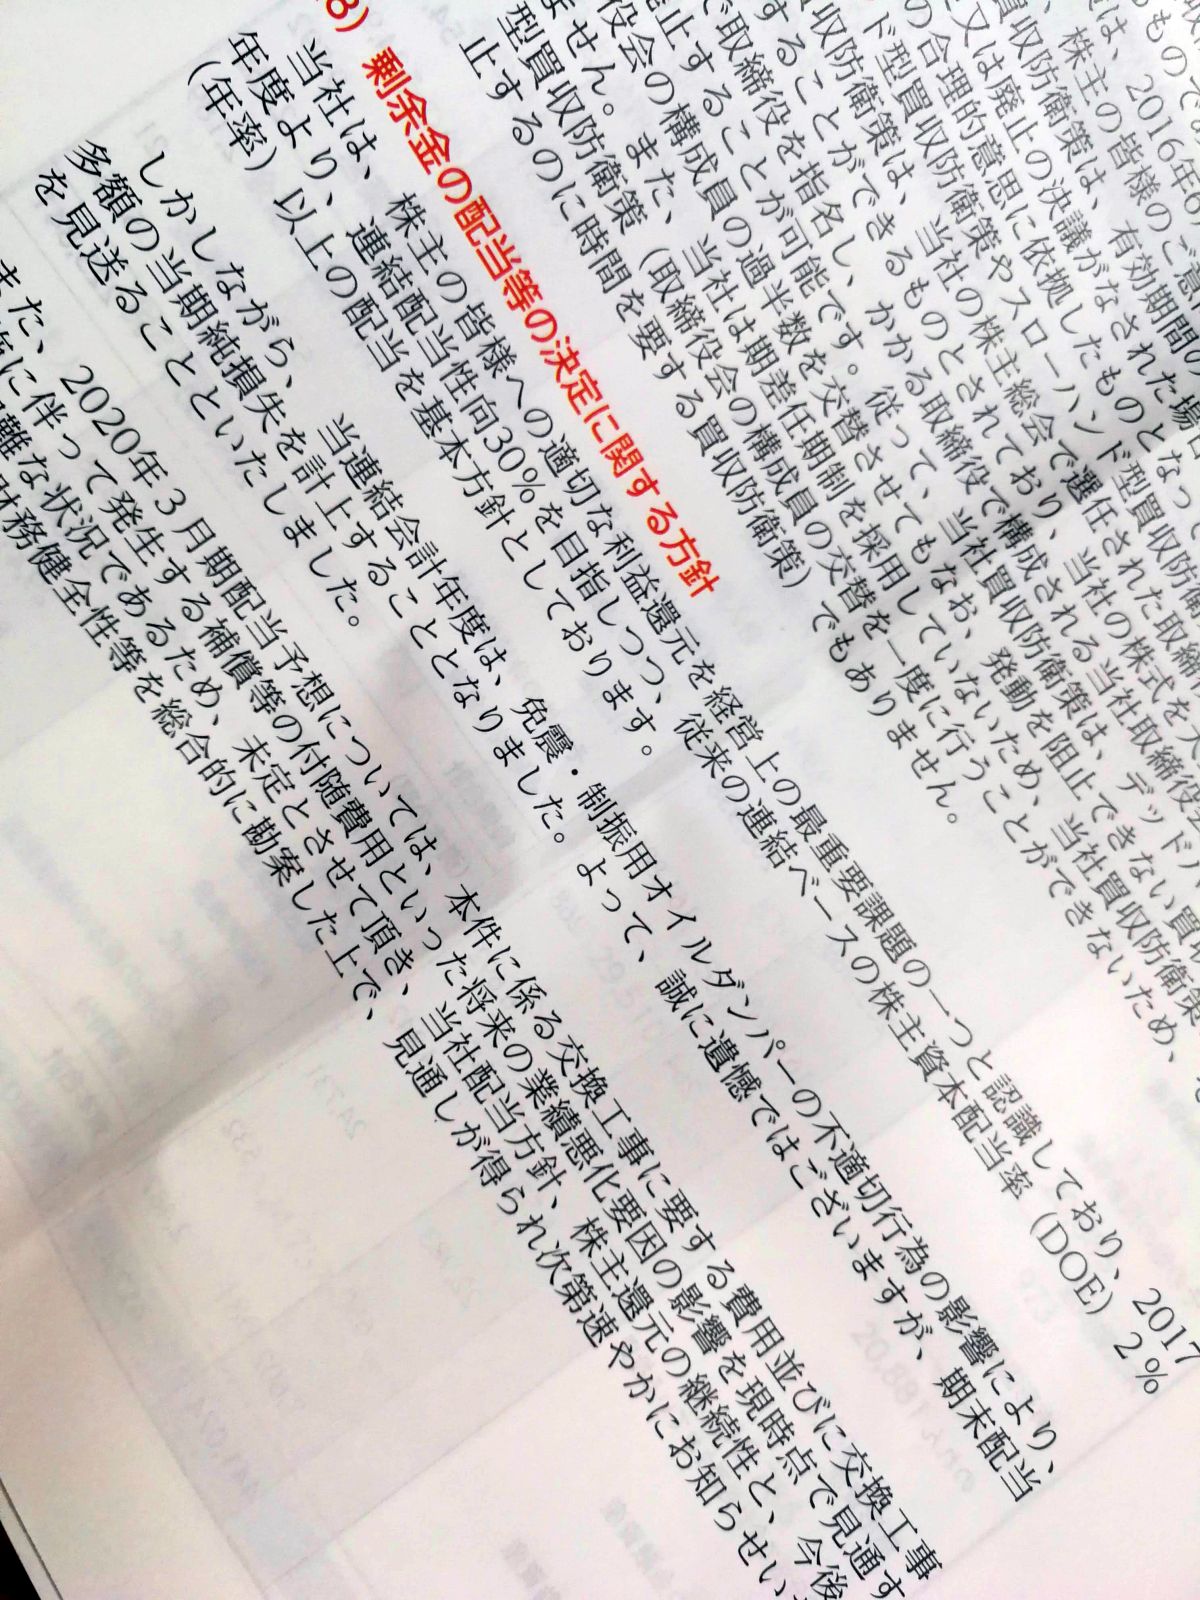 は、2016年6
株主の皆様のご意
買収防衛策は、有効期間の
又は廃止の決議がなされた場合
の合理的意思に依拠したものとなって
ド型買収防衛策やスローハンド型買収防衛
収防衛策は、当社の株主総会で選任された取締
することができるものとされており、当社の株式を大
で取締役を指名し、かかる取締役で構成される当社取締役会
止することが可能です。従って、当社買収防衛策は、デッドハ
役会の構成員の過半数を交替させてもなお、発動を阻止できない買収
ません。また、当社は期差任期制を採用していないため、当社買収防衛策
型買収防衛策（取締役会の構成員の交替を一度に行うことができないため、
止するのに時間を要する買収防衛策）でもありません。
8）剰余金の配当等の決定に関する方針
当社は、株主の皆様への適切な利益還元を経営上の最重要課題の一つと認識しており、2017
年度より、連結配当性向30%を目指しつつ、従来の連結ベースの株主資本配当率（DOE）2%
（年率）以上の配当を基本方針としております。
しかしながら、当連結会計年度は、免震・制振用オイルダンパーの不適切行為の影響により、
多額の当期純損失を計上することとなりました。よって、誠に遺憾ではございますが、期末配当
を見送ることといたしました。
また、2020年3月期配当予想については、本件に係る交換工事に要する費用並びに交換工事
に伴って発生する補償等の付随費用といった将来の業績悪化要因の影響を現時点で見通す
難な状況であるため、未定とさせて頂き、当社配当方針、株主還元の継続性と、今後
財務健全性等を総合的に勘案した上で、見通しが得られ次第速やかにお知らせい